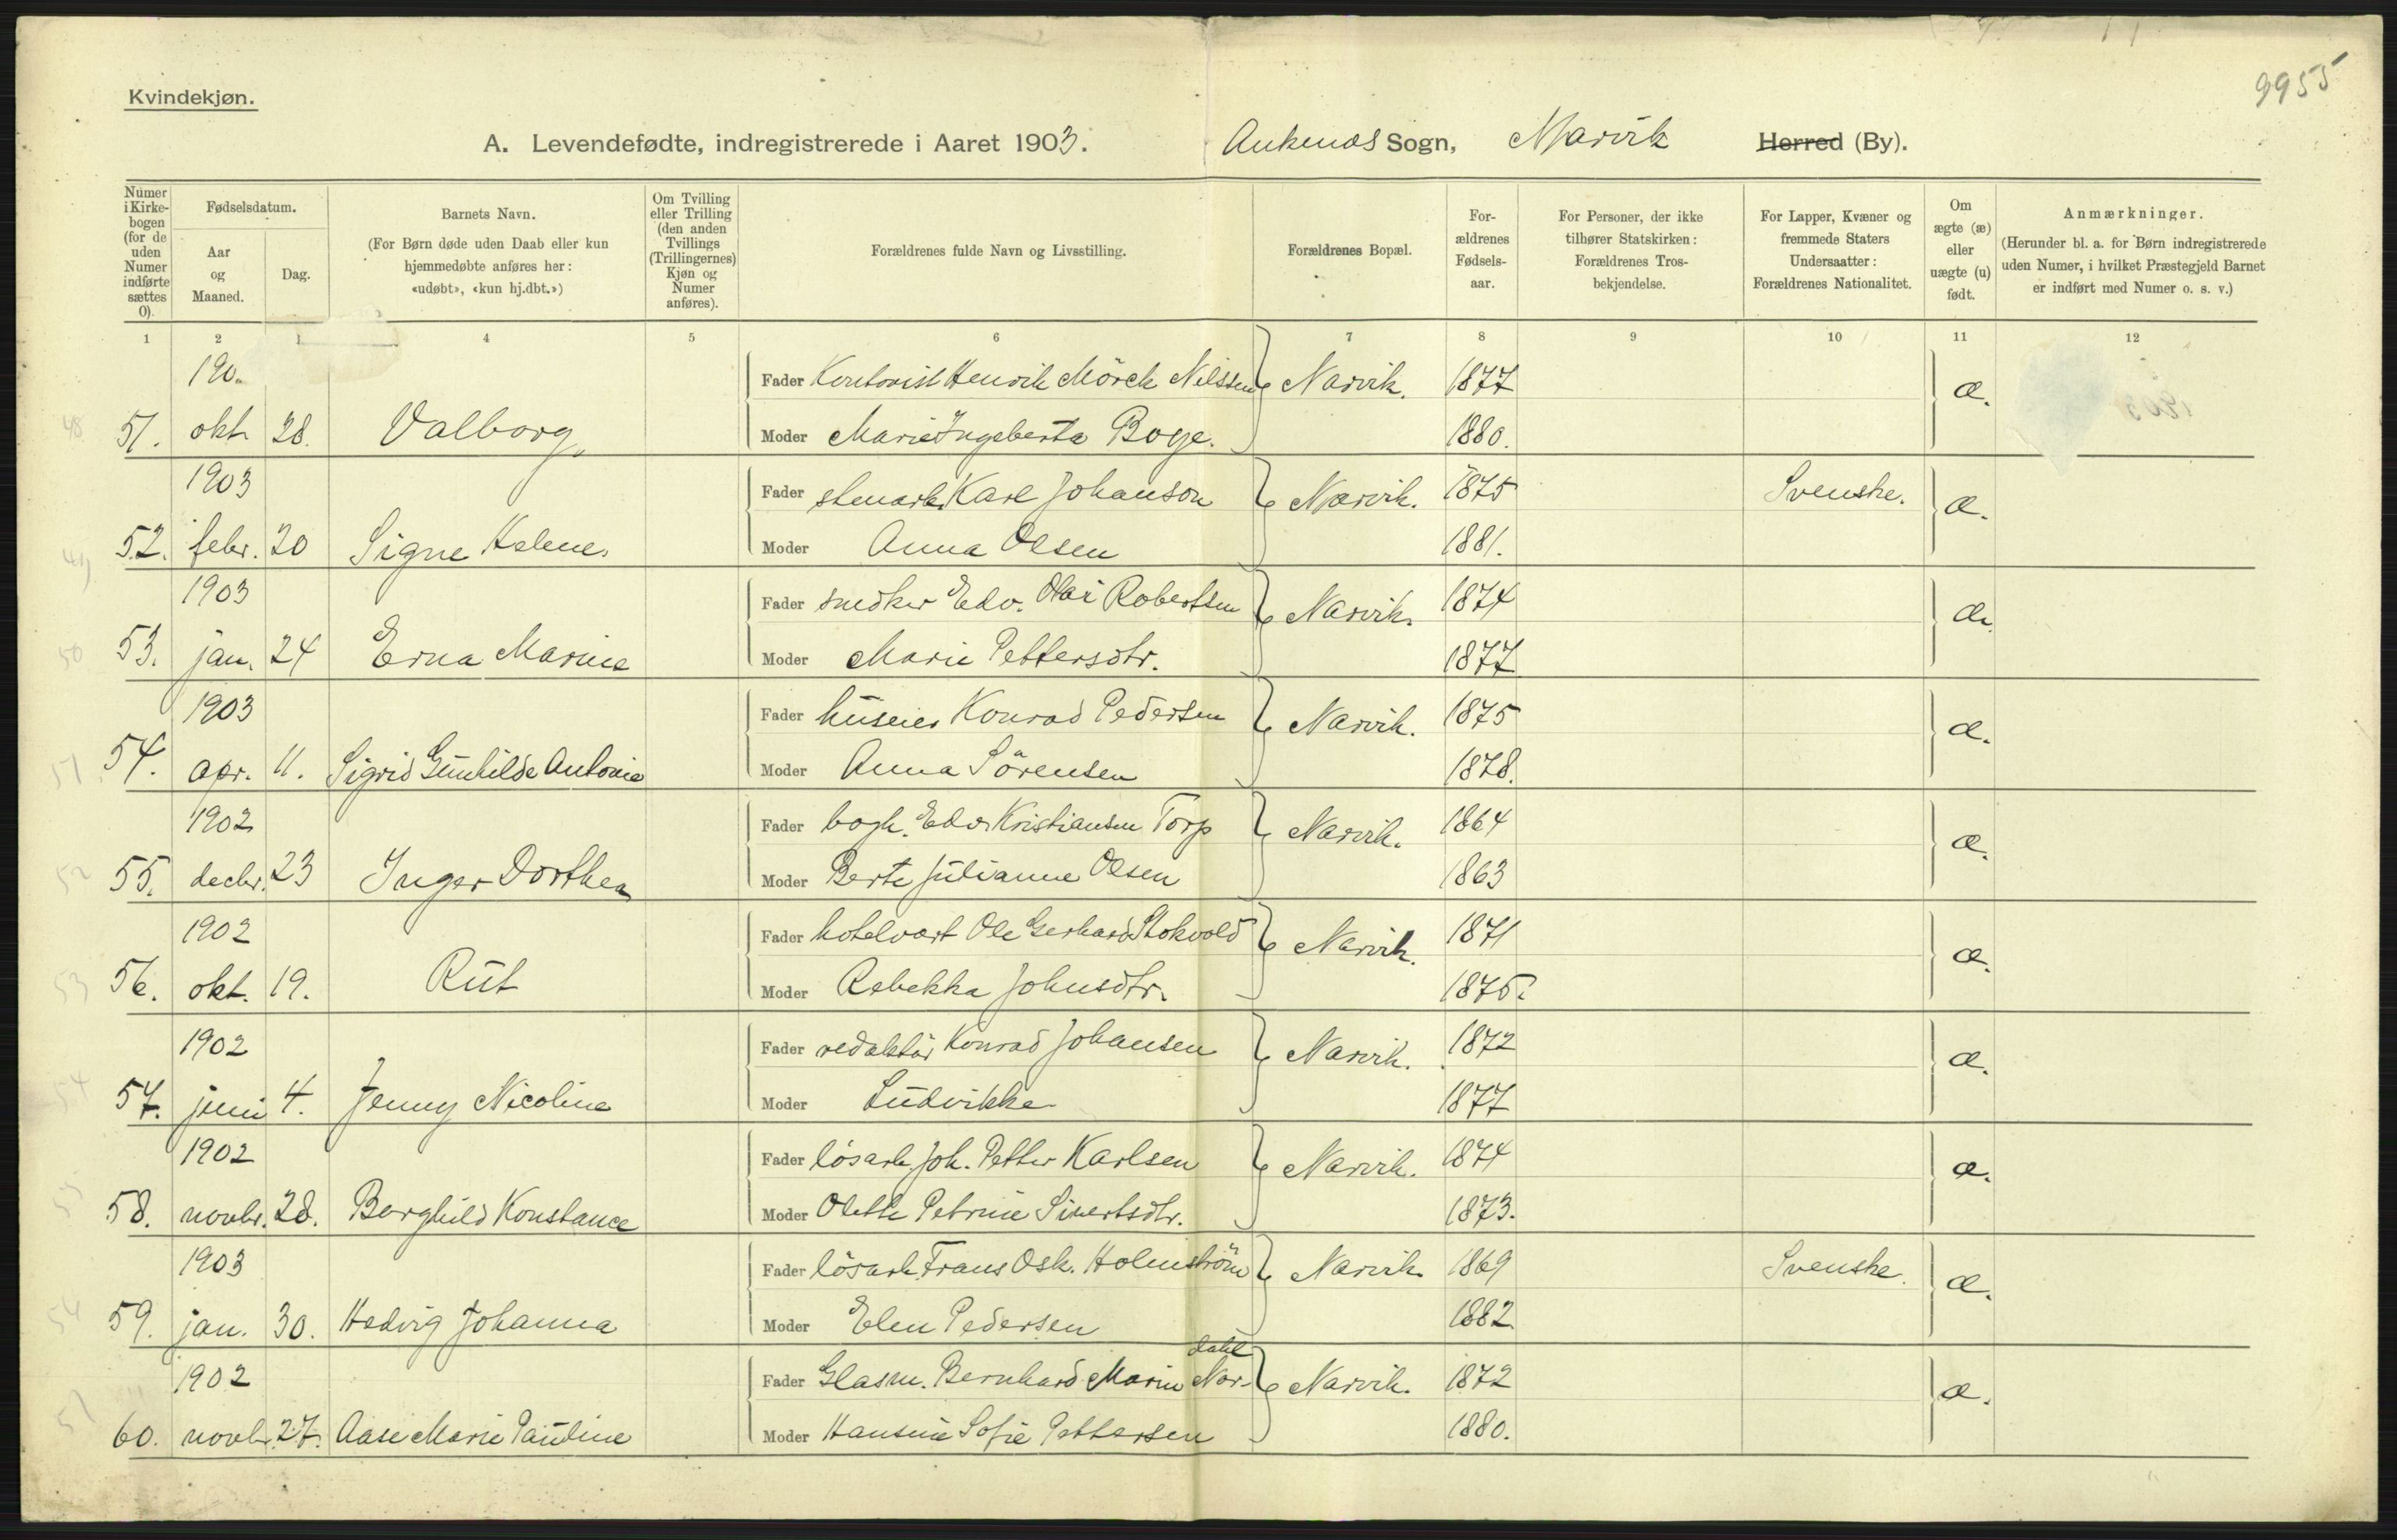 9955
Kvindekjøn.
A. Levendefødte, indregistrerede i Aaret 1903. Ankenæs Sogn, Narvik Herred (By).
Numer i Kirkebogen (for de uden Numer indførte sættes 0).
Fødselsdatum.
Aar og Maaned.
Dag.
Barnets Navn.
(For Børn døde uden Daab eller kun hjemmedøbte anføres her: «udøbt», «kun hj.dbt.»)
Om Tvilling eller Trilling (den anden Tvillings (Trillingernes) Kjøn og Numer anføres).
Forældrenes fulde Navn og Livsstilling.
Forældrenes Bopæl.
Forældrenes Fødselsaar.
For Personer, der ikke tilhører Statskirken: Forældrenes Trosbekjendelse.
For Lapper, Kvæner og fremmede Staters Undersaatter: Forældrenes Nationalitet.
Om ægte (æ) eller uægte (u) født.
Anmærkninger.
(Herunder bl. a. for Børn indregistrerede uden Numer, i hvilket Præstegjeld Barnet er indført med Numer o. s. v.)
1 2 3 4 5 6 7 8 9 10 11 12
190. Fader Kontorist Henrik Mörch Nilssen Narvik. 1877 æ.
51. okt 28. Valborg Moder Marie Ingeberta Boge. 1880.
1903 Fader stenarb. Karl Johanson Narvik. 1875 Svenske. æ.
52. febr. 20 Signe Helene. Moder Anna Olsen 1881.
1903 Fader snedker Edv. Olai Robertsen Narvik. 1874 æ.
53. jan. 24 Erna Marine Moder Marie Pettersdtr. 1877
1903 Fader huseier Konrad Pedersen Narvik. 1875 æ.
54. apr. 11. Sigrid Gunhilde Antonie Moder Anna Sörensen 1878.
1902 Fader bogh. Edv. Kristiansen Torp Narvik. 1864 æ.
55. decbr. 23 Inger Dorthea Moder Berte Julianne Olsen 1863
1902 Fader hotelvært Ole Gerhard Stokvold Narvik. 1871 æ.
56. okt. 19. Rut Moder Rebekka Johnsdtr. 1876.
1902 Fader redaktör Konrad Johansen Narvik. 1872 æ.
57. juni 4. Jenny Nicoline Moder Ludvikke 1877
1902 Fader lösarb. Joh. Petter Karlsen Narvik. 1874 æ.
58. novbr. 28. Borghild Konstance Moder Olette Petrine Sivertsdtr. 1873.
1903 Fader lösarb. Frans Osk. Holmström Narvik. 1869 Svenske. æ.
59. jan. 30. Hedvig Johanna Moder Elen Pedersen 1882
dahl
1902 Fader Glasm. Bernhard Marin Nor- Narvik. 1872 æ.
60. novbr. 27. Aase Marie Pauline Moder Hansine Sofie Pettersen 1880.